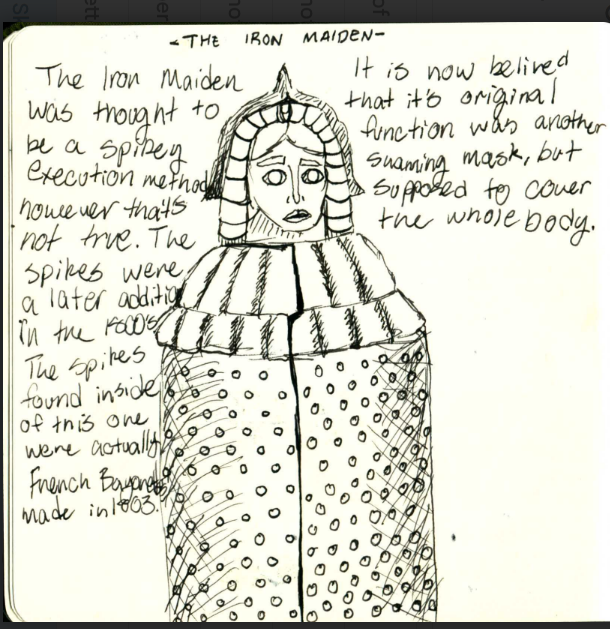 -THE IRON MAIDEN-
The Iron Maiden
was thought to
be a spikey
execution method
however that's
not true. The
spikes were
a later addition
in the 1800's
The spikes
found inside
of this one
were actually
French Bayonets
made in 1803.
It is now belived
that it's original
function was another
shaming mask, but
supposed to cover
the whole body.